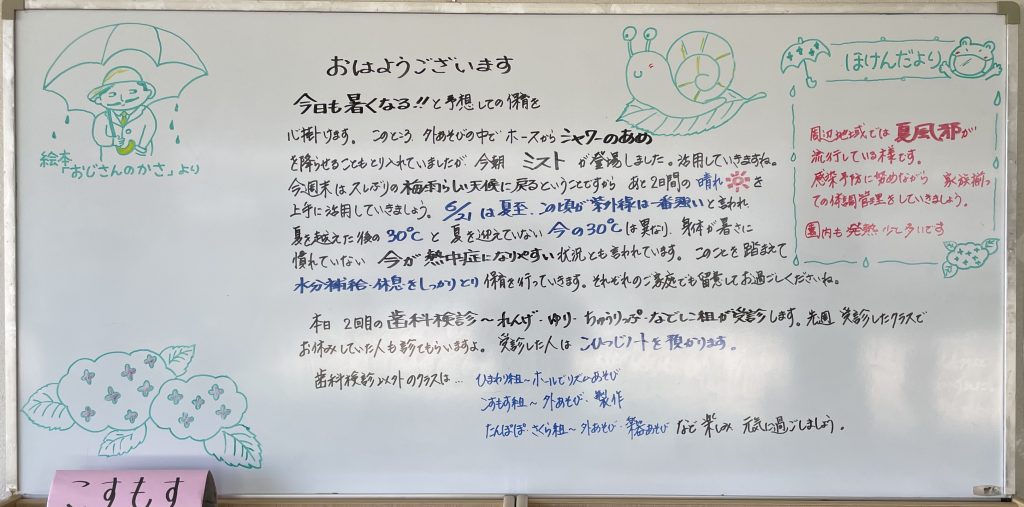 おはようございます
今日も暑くなる!!と予想しての保育を
心掛けます。このところ 外あそびの中で ホースからシャワーのあめ
を降らせることもとり入れていましたが 今朝 ミスト が登場しました。活用していきますね。
今週末は 久しぶりの梅雨らしい天候に戻るということですから あと2日間の晴れを
上手に活用していきましょう。6/21は夏至、この頃が紫外線は一番強いと言われ
夏を越えた後の30℃と 夏を迎えていない 今の30℃は異なり、身体が暑さに
慣れていない 今が熱中症になりやすい状況とも言われています。このことを踏まえて
水分補給・休息をしっかりとり 保育を行っていきます。それぞれのご家庭でも留意してお過ごしくださいね。
本日 2回目の歯科検診～れんげ・ゆり・ちゅうりっぷ・なでしこ組が受診します。先週 受診したクラスで
お休みしていた人も診てもらいますよ。受診した人は こひつじノートを預かります。
歯科検診以外のクラスは…
ひまわり組～ホールでリズムあそび
こすもす組～外あそび・製作
たんぽぽ・さくら組～外あそび・あそび など 楽しみ 元気に過ごしましょう。
絵本
「おじさんのかさ」より
ほけんだより
周辺地域では 夏風邪が
流行している様です。
感染予防に努めながら 家族揃っ
ての体調管理をしていきましょう。
園内も 発熱 少しろいです
こすもす